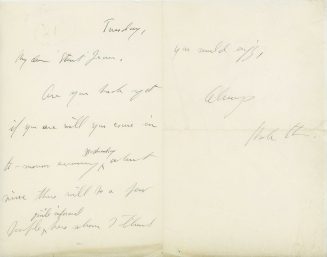 Tuesday,
My dear Aunt Jean,
Are you back yet
if you are will you come in
Wednesday
to-morrow evening, about
nine there will be a few
quite informal
people, here whom I think
you would enjoy,
Always